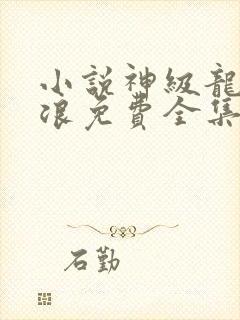 小説神級龍
浪免費全集
石勤